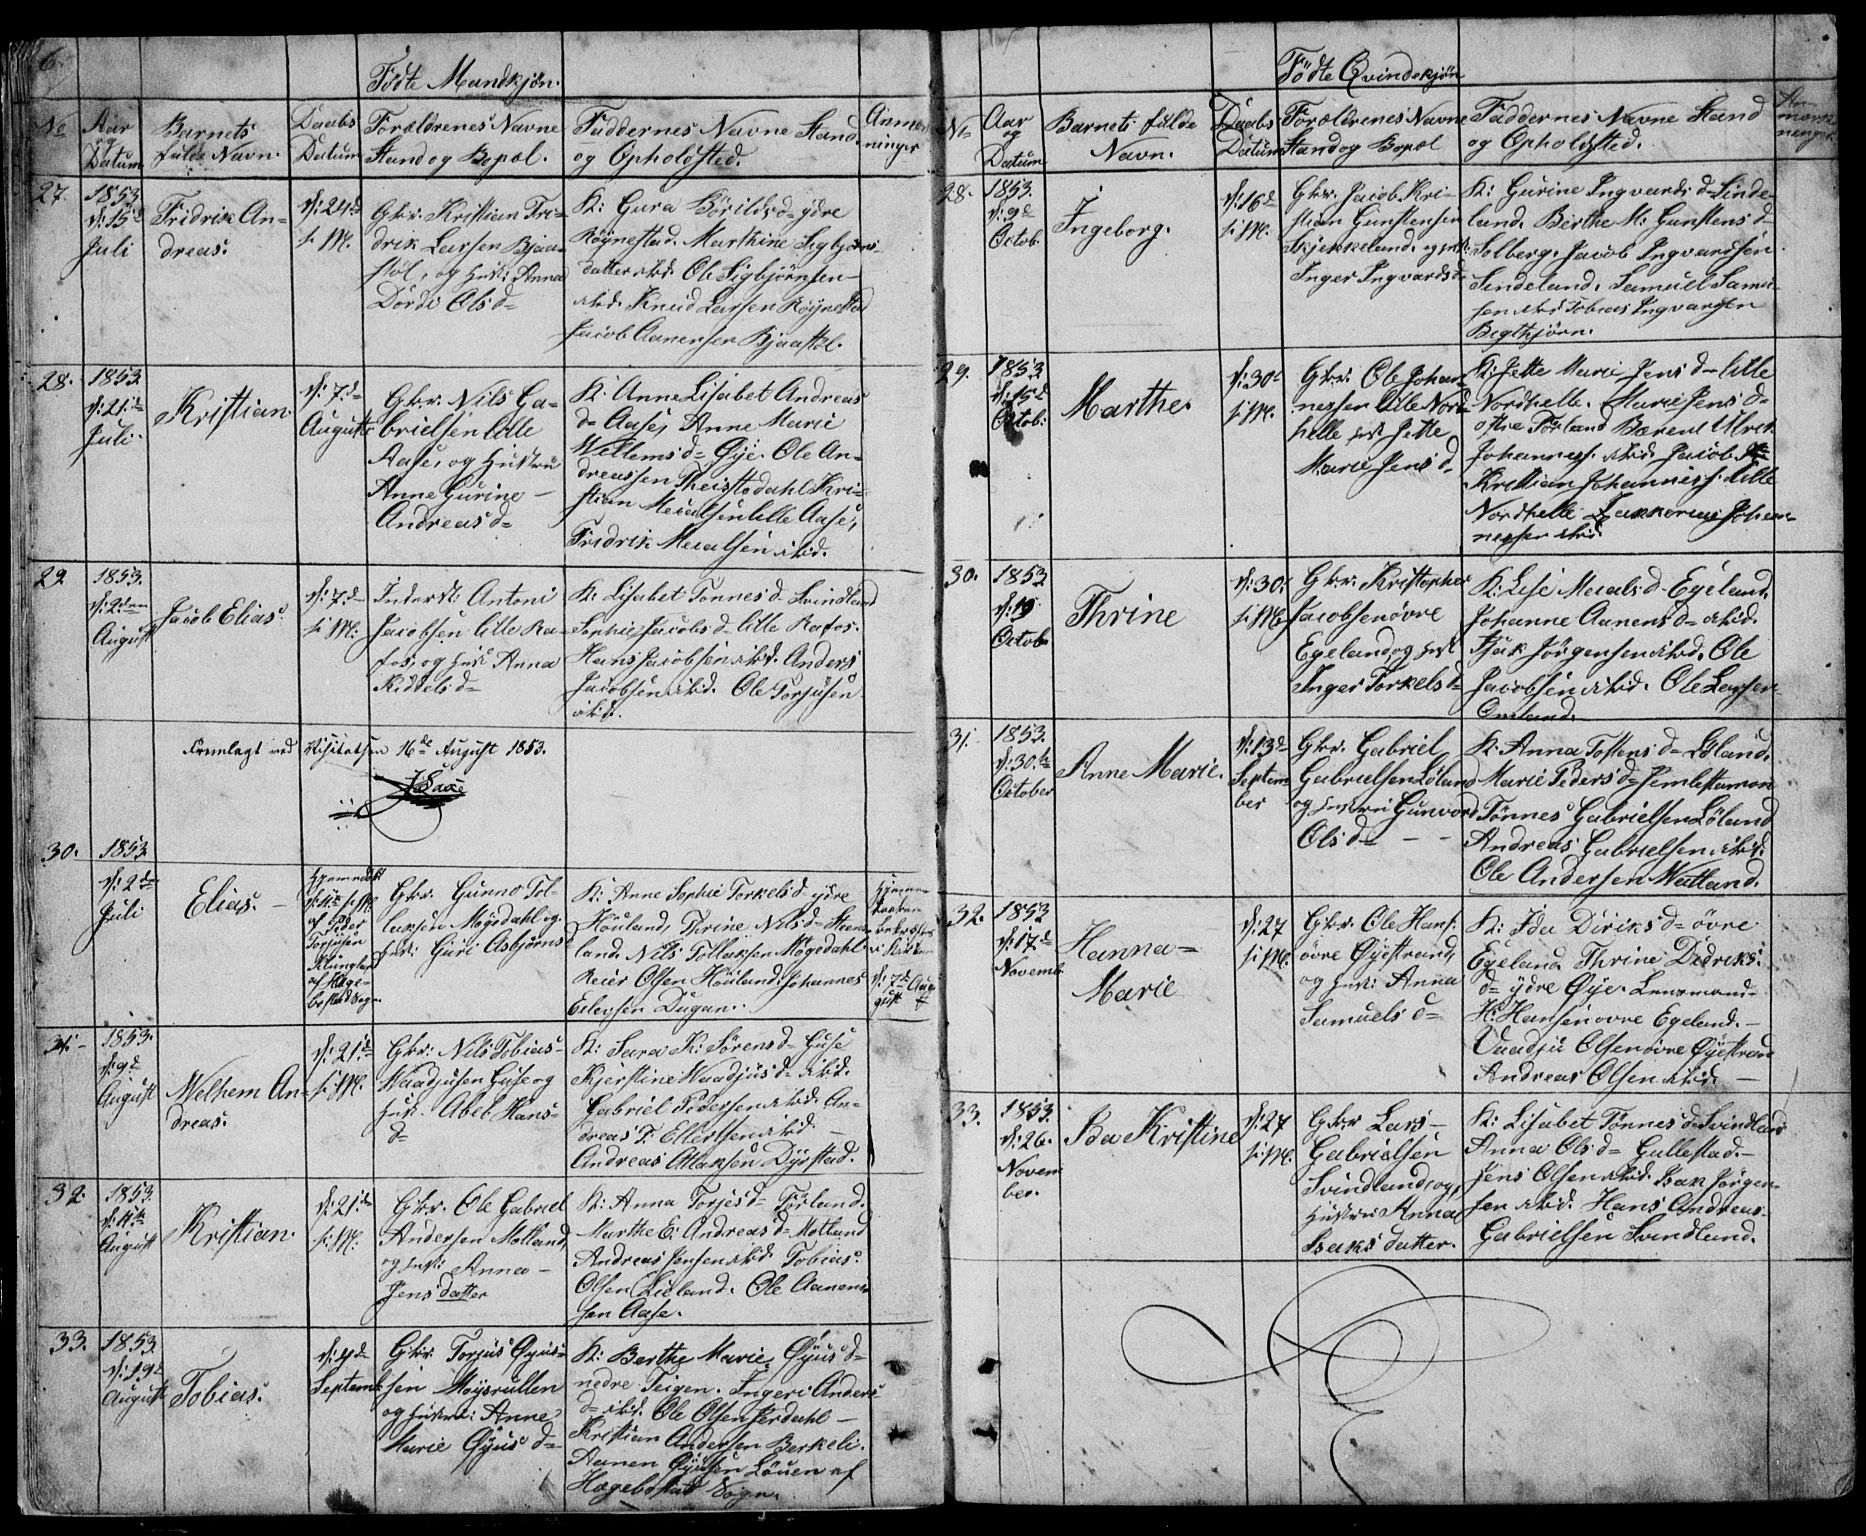 6.
Födte Mandkjøn.
No
Aar og Datum
Barnets fulde Navn.
Daabs Datum
Forældrenes Navne Stand og Bopæl.
Faddernes Navne Stand og Opholdsted.
Anmærkninger
27.
1853. d: 15de Juli
Fridrik Andreas.
d: 24de s: M.
Gkr. Kristian Fri-
drik Larsen Bjaa-
støl, og Hust: Anna
Dorde Olsd=
K: Gura Börilds d= ydre
Röynestad. Marthine Sigbjørns-
datter ibid. Ole Sigbjörnsen
ibid. Knud Larsen Röynestad
Jacob Aanensen Bjaastöl.
28.
1853. d: 21de Juli.
Kristian.
d: 7de August
Gkr. Nils Ga-
brielsen lille
Aase, og Hustru
Anne Gurine
Andreas d=
K: Anne Lisabet Andreas
d= Aase, Anne Marie
Willems d= Øÿe. Ole An-
dreassen Theistedahl Kri-
stian Mealsen lille Aase,
Fridrik Mealsen ibid.
29
1853. d: 2den August
Jacob Elias.
d: 7de s: M:
Inderst: Antoni
Jacobsen lille Ra-
fos, og Hust Anna
Kiddels d=
K: Lisabet Tönnes d. Svindland
Sophie Jacobs d= lille Rafos.
Hans Jacobsen ibid. Anders
Jacobsen ibid. Ole Torjusen
ibid.
Fremlagt ved Visitatsen 16de August 1853.
30.
1853 d: 2de Juli
Elias.
Hjemmedøbt
af Peder
Torjusen
af Hæge-
bostad Sogn
Gkr. Gunno Tol-
laksen Mögedahl og
Hust: Guri Asbjörns
K: Anne Sophie Torkels d ydre
Houland, Thrine Nils d= Steens-
land. Nils Tollaksen Mögedahl
Reier Olsen Houland: Johannes
Eilevsen Dugan.
d: 7de August
31.
1853. d: 9de August
Welhem Andreas.
d: 21de s: M.
Gkr: Nils Tobias
Waadjusen Guse og
Hust. Abeb Hans-
d=
K: Sara K: Sörens d= Guse
Kjerstine Waadjus d= ibid.
Gabriel Pedersen ibid. An-
dreas T: Ellertsen ibid.
Andreas Atlaksen Dyrstad.
32.
1853. August
Kristian.
d: 21de s: M:
Gkr. Ole Gabriel
Andersen Motland,
og Hust: Anna
Jens datter
K: Anna Torjes d= Förland.
Marthe E: Andreas d= Motland
Andreas Jensen ibid. Tobias
Olsen Lieland. Ole Aanen-
sen Aase.
33.
1853 d: 29de August
Tobias.
d: 4de September
Gkr. Torjus Öyus-
sen Möysrullen
og Hustru: Anne
Marie Öyus d=
K: Berthe Marie Öyus d=
nedre Teigen. Ingeri Anders
d= ibid. Ole Olsen Jerdahl
Kristian Andersen Berkeli.
Aanen Öyusen Löuen af
Hægebostad Sogn.
Födte Qvindekjön
No
Aar og Datum
Barnets fulde Navn.
Daabs Datum
Forældrenes Navne Stand og Bopæl
Faddernes Navne Stand og Opholdsted.
Anmærkninger
28.
1853 d: 9de Octob.
Ingeborg.
d: 16de s: M.
Gkr. Jacob Kri-
stian Gunstensen
Skjekkeland. og Hust:
Inger Ingvards d=
K: Gurine Ingvards d= Linde-
land. Berthe M: Gunstens d=
Solberg. Jacob Ingvardsen
Lindeland. Samuel Samu-
sen ibid Tobias Ingvardsen
Begthjörn.
29.
1853 d: 15de Octob:
Marthe.
d: 30de s: M.
Gkr. Ole Johan-
nessen lille Nord-
helle Hust Jette
Marie Jens d=
K: Jette Marie Jens d= lille
Nordhelle. Marie Jens d=
østre Förland Berent Ulrik
Johanness. ibid. Jacob
Kristian Johanness. lille
Nordhelle Johan-
nessen ibid.
30.
1853 d: 19 October
Thrine
d: 30. s: M
Gkr. Kristopher
Jacobsen övre
Egeland, og Hust
Inger Torkels d=
K: Lise Meals d= Egeland.
Johanne Aanens d= ibid.
Isak Jörgensen ibid. Ole
Jacobsen ibid. Ole Larsen
Omland.
31.
1853. d: 30te October
Anne Marie.
d: 13de September
Gkr. Gabriel
Gabrielsen Löland
og Hustru Gunvord
Ols d=
K: Anna Tostens d= Löland.
Marie Peders d= Jemlestamon
Tönnes Gabrielsen Löland
Andreas Gabrielsen ibid.
Ole Andersen Watland.
32.
1853 d: 17de Novemb.
Hanna= Marie
d: 27 s: M.
Gkr. Ole Hans.
övre Øyestrand,
og Hust: Anna
Samuels d=
K: Ida Diriks d= övre
Egeland. Thrine Didriks
d= ydre Øye. Lensmand
H. Hansen övre Egeland.
Vaadju Olsen övre Øyestran
Andreas Olsen ibid.
33.
1853. d: 26. November.
Ba Kristine
d: 27 s: M.
Gkr Lars
Gabrielsen
Svindland, og,
Hustru Anna
Isaks datter.
K: Lisabet Tönnes d= Svindland
Anna Ols d= Gullestad.
Jens Olsen ibid. Isak Jörgen-
sen ibid. Hans Andreas
Gabrielsen Svindland.